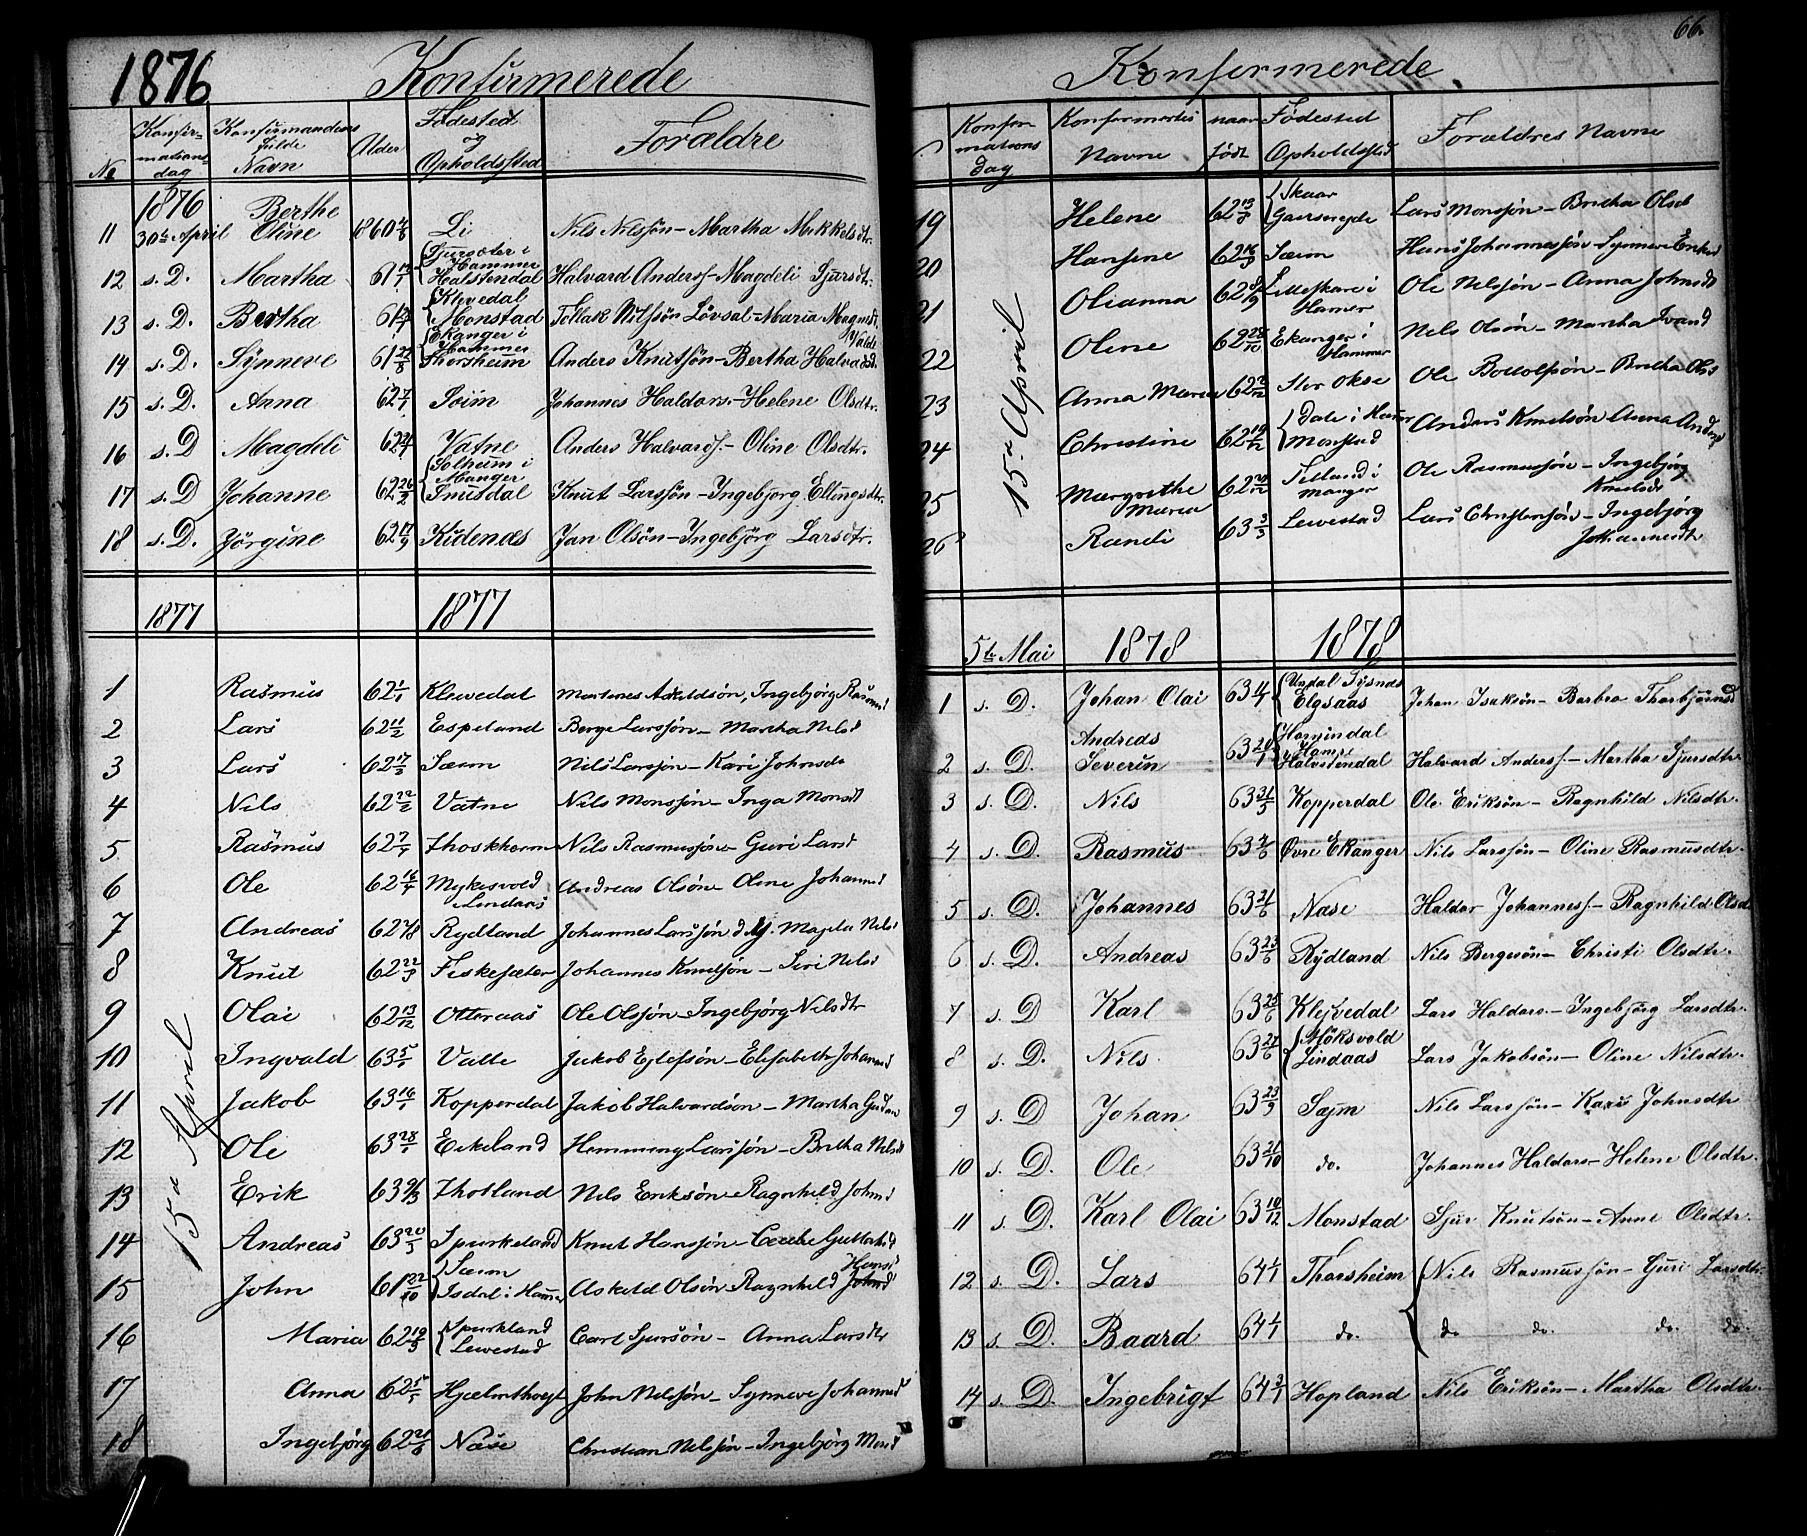 1876 Konfirmerede
No Konfir-mations-dag Konfirmandens fulde Navn Alder Fødested og Opholdssted Forældre
1876
11 30te April Berthe Oline 1860 Li Nils Nilssön - Martha Mikkelsdtr.
12 s. D. Martha 61 Hammer Halstendal Halvard Anders. - Magdeli Sjursdtr.
13 s. D. Bertha 61 Klevedal Monstad Tollak Nilssön Lövsal - Maria Magnusd.
14 s. D. Synneve 61 Ekanger i Hammer Thorsheim Anders Knutsön - Bertha Halvardsd
15 s. D. Anna 62 7/7 Soim Johannes Haldors. - Helene Olsdtr.
16 s. D Magdeli 62 Vatne Anders Halvards. - Oline Olsdtr.
17 s. D Johanne 62 26/2 Solheim i Manger Knut Larssön - Ingebjorg Ellingsdtr
18 s. D. Jörgine 62 17/9 Kidenes Jan Olsön - Ingebjörg Larsdtr.
1877 1877
1 Rasmus 62 1/1 Klevedal Ingebjörg Rasmusd
2 Lars 62 11/2 Espeland Berge Larssön - Martha Nilsd
3 Lars 62 17/2 Sæim Nils Larssön - Kari Johnsdr
4 Nils 62 22/2 Vatne Nils Monssön - Inga Monsdt
5 Rasmus 62 Nils Rasmussön - Guri Larsd
6 Ole 62 16/4 Lindaas Andreas Olsön - Oline Johannesd
7 Andreas 62 Rydland Johannes Larssön d. y. Nilsd
8 Knut 62 Fiskesæter Johannes Knutsön - Siri Nilsd
9 Olai 62 13/12 Otteraas Ole Olssön - Ingebjörg Nilsdtr
10 Ingvald 63 5/1 Jakob - Elisabeth Johannesd
11 Jakob 63 16/1 Kopperdal Jakob Halvardsön - Martha
12 Ole 63 28/1 Eikeland Hemming Larssön - Britha Nilsdt
13 Erik 63 Nils Eriksön - Ragnhild Johnsd
14 Andreas 63 20/3 Spurkeland Knut Hanssön -
15 John 61 22/10 Sæim Isdal i Hammer Askeld Olsön - Ragnhild Hansd
16 Maria 62 19/3 Spurkland Lewestad Carl Sjursön - Anna Larsdtr
17 Anna 62 John Nilssön - Synneve Johannesd
18 Ingebjørg 62 Næse Christian Nilssön - Ingebjörg Monsd
15de April
66.
Konfirmerede
Konfir-mations dag Konfirmertes Navne naar født Fødested Opholdssted Forældres Navne
19 Helene 62 13/8 Skaar Lars Monssön - Britha Olsd
20 Hansine 62 16/9 Sæim Hans Johannessön - Synneve
21 Olianna 62 Lilleskare i Hamer Ole Nilssön - Anna Johnsdt
22 Oline 62 28/10 Ekanger i Hammer Nels Olsön - Martha Ivarsd
23 Anna Maria 62 Ole - Britha Olsd
24 Christine 62 19/12 Dale i Hamer Monstad Anders Knutsön Anna Andersd
25 Margrethe Maria 62 Manger Ole Rasmussön - Ingebjörg Knutsdt
26 Randi 63 3/3 Lewestad Lars Christensön - Ingebjörg Johannesdt
15. April
5te Mai 1878 1878
1 s. D. Johan Olai 63 Elgsaas Johan Isaksön - Barbro Thorbjörnsd
2 s. D. Andreas Severin 63 Halvstendal Halvard Anders. - Martha Sjursdtr
3 s. D. Nils 63 Kopperdal Ole Eriksön - Ragnhild Nilsdtr.
4 s. D. Rasmus 63 Øvre Ekanger Nils Larssön - Oline Rasmusdtr.
5 s. D. Johannes 63 Næse Haldor Johanness. - Ragnhild Olsd
6 s. D. Andreas 63 23/6 Rydland Nils Bergesön - Christi Olsdtr.
7 s. D Karl 63 25/6 Klejvedal Lars Haldors. - Ingebjörg Larsdtr.
8 s. D. Nils 63 27/6 Möksvold Lindaas Lars Jakobsön - Oline Nilsdtr.
9 s. D Johan 63 23/9 Sæjm Nils Larssön - Kari Johnsdtr
10 s. D. Ole 63 21/10 do. Johannes Haldors - Helene Olsdtr.
11 s. D. Karl Olai 63 10/12 Monstad Sjur Knutsön - Anne Olsdtr.
12 s. D. Lars 64 1/1 Thorsheim Nils Rasmussön - Guri Larsdtr
13 s. D. Baard 64 1/1 do. do do. do. do.
14 s. D. Ingebrigt 64 Hopland Nils Eriksön - Martha Olsdtr.